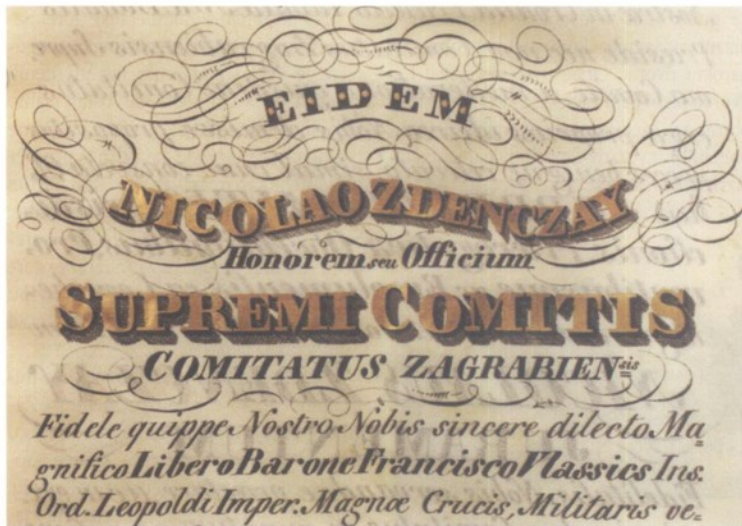 EIDEM
NICOLAO ZDENCZAY
Honorem seu Officium
SUPREMI COMITIS
COMITATUS ZAGRABIENsis
Fidele quippe Nostro Nobis sincere dilecto Ma=
gnifico Libero Barone Francisco Vlassics Ins.
Ord. Leopoldi Imper. Magnæ Crucis, Militaris ve=